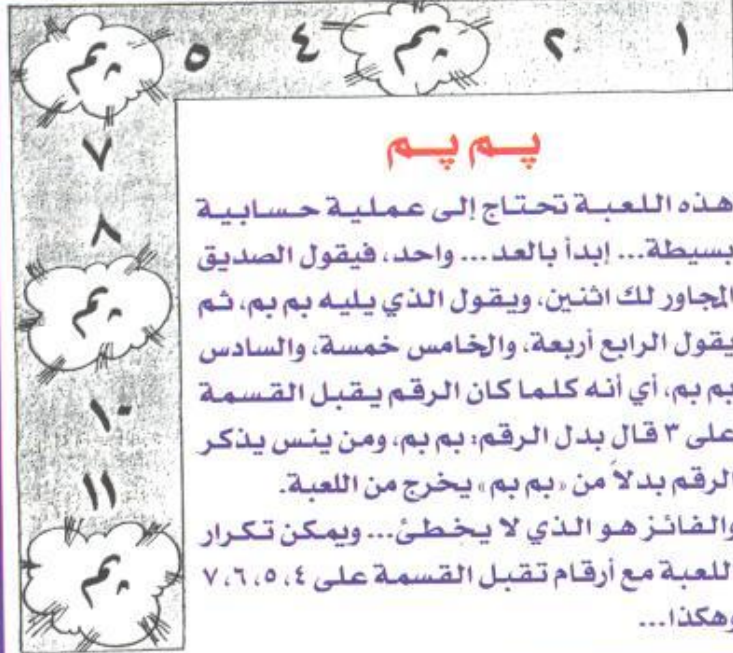 ١ ٢ بم ٤ ٥ بم
٧
٨
بم
١٠
١١
بم
پم پم
هذه اللعبة تحتاج إلى عملية حسابية
بسيطة... إبدأ بالعد... واحد، فيقول الصديق
المجاور لك اثنين، ويقول الذي يليه بم بم، ثم
يقول الرابع أربعة، والخامس خمسة، والسادس
بم بم، أي أنه كلما كان الرقم يقبل القسمة
على ٣ قال بدل الرقم: بم بم، ومن ينس يذكر
الرقم بدلاً من «بم بم» يخرج من اللعبة.
والفائز هو الذي لا يخطئ... ويمكن تكرار
اللعبة مع أرقام تقبل القسمة على ٤، ٥، ٦، ٧
وهكذا...